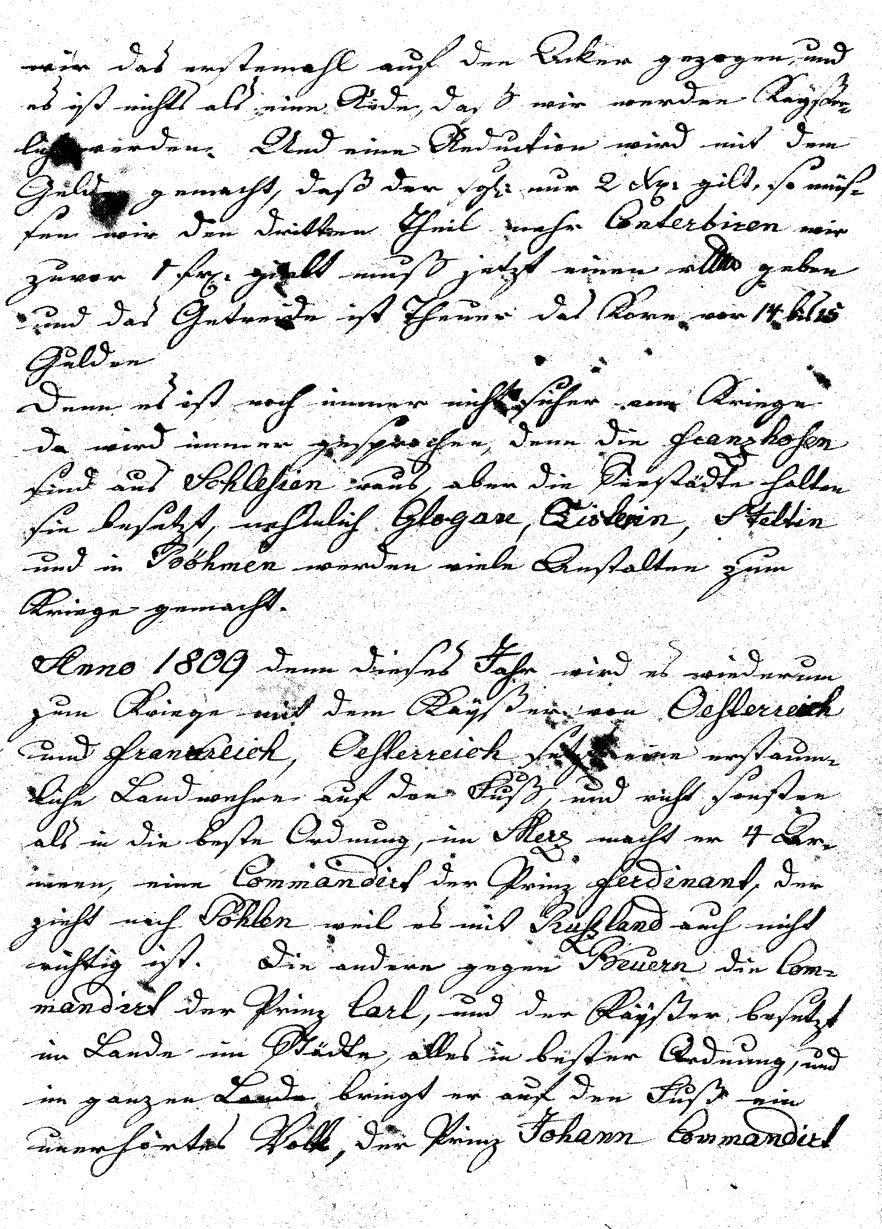 wir das erstemahl auf den Acker gezogen, und
es ist nichts als eine Rede, daß wir werden Kayßer-
lich werden. Und eine Reduction wird mit dem
Geld gemacht, daß der sgl: nur 2 xr: gilt, so müs-
sen wir den dritten Theil mehr Conterbiren wir
zuvor 1 frx: giebt muß jetzt einen geben
und das Getreide ist Theuer das Korn vor 14 bis 15
Gulden
Denn es ist noch immer nicht sicher vom Kriege
da wird immer gesprochen, denn die Franzhosen
sind aus Schlesien raus, aber die Seestädte halten
sie besetzt, nehmlich Glogau, Cistrin, Stettin
und in Böhmen werden viele Anstalten zum
Kriege gemacht.
Anno 1809 denn dieses Jahr wird es wiederum
zum Kriege mit dem Kayßer von Oesterreich
und Frankreich, Oesterreich setzt eine erstaun-
liche Landwehre auf den Fuß, und nicht sonsten
als in die beste Ordnung, im Merz macht er 4 Ar-
meen, eine Commandirt der Prinz Ferdinant, der
zieht nach Pohlen weil es mit Rußland auch nicht
richtig ist. Die andere gegen Beuern die Com-
mandirt der Prinz Carl, und der Kayßer besetzt
im Lande im Städte, alles in bester Ordnung, und
im ganzen Lande bringt er auf den Fuß ein
unerhörtes Volk, der Prinz Johann Commandirt